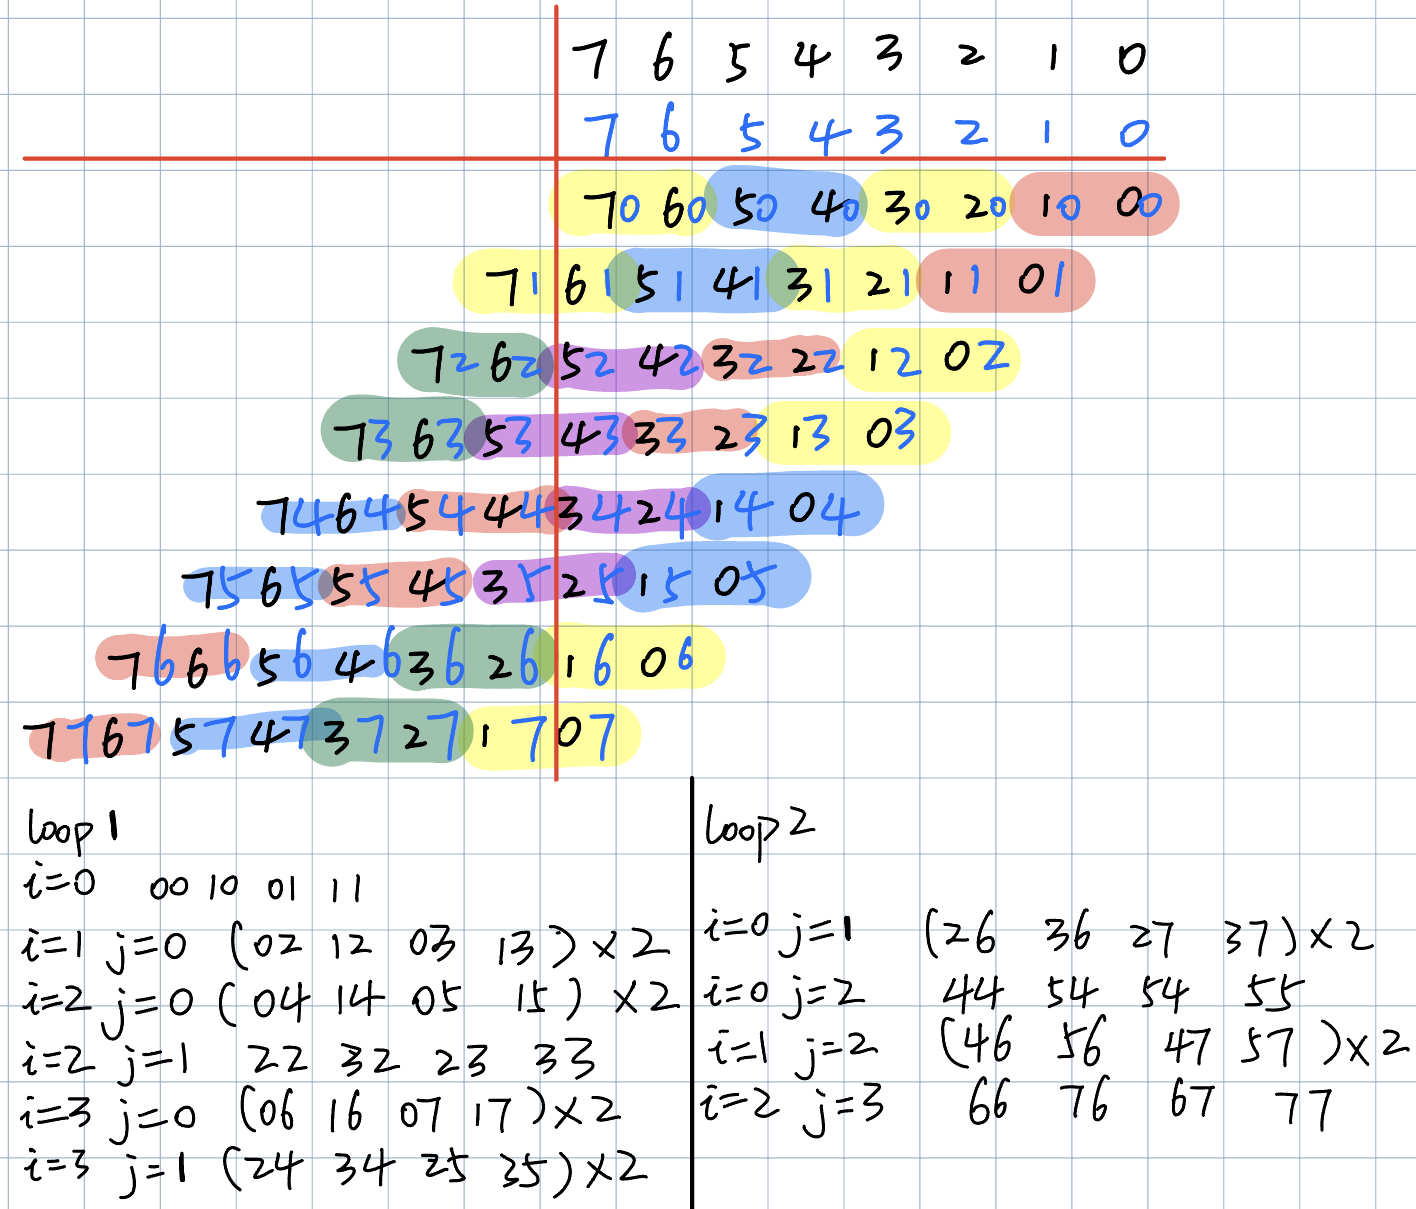 7 6 5 4 3 2 1 0
7 6 5 4 3 2 1 0
70 60 50 40 30 20 10 00
71 61 51 41 31 21 11 01
72 62 52 42 32 22 12 02
73 63 53 43 33 23 13 03
74 64 54 44 34 24 14 04
75 65 55 45 35 25 15 05
76 66 56 46 36 26 16 06
77 67 57 47 37 27 17 07
loop 1
i=0 00 10 01 11
i=1 j=0 (02 12 03 13) × 2
i=2 j=0 (04 14 05 15) × 2
i=2 j=1 22 32 23 33
i=3 j=0 (06 16 07 17) × 2
i=3 j=1 (24 34 25 35) × 2
loop 2
i=0 j=1 (26 36 27 37) × 2
i=0 j=2 44 54 54 55
i=1 j=2 (46 56 47 57) × 2
i=2 j=3 66 76 67 77